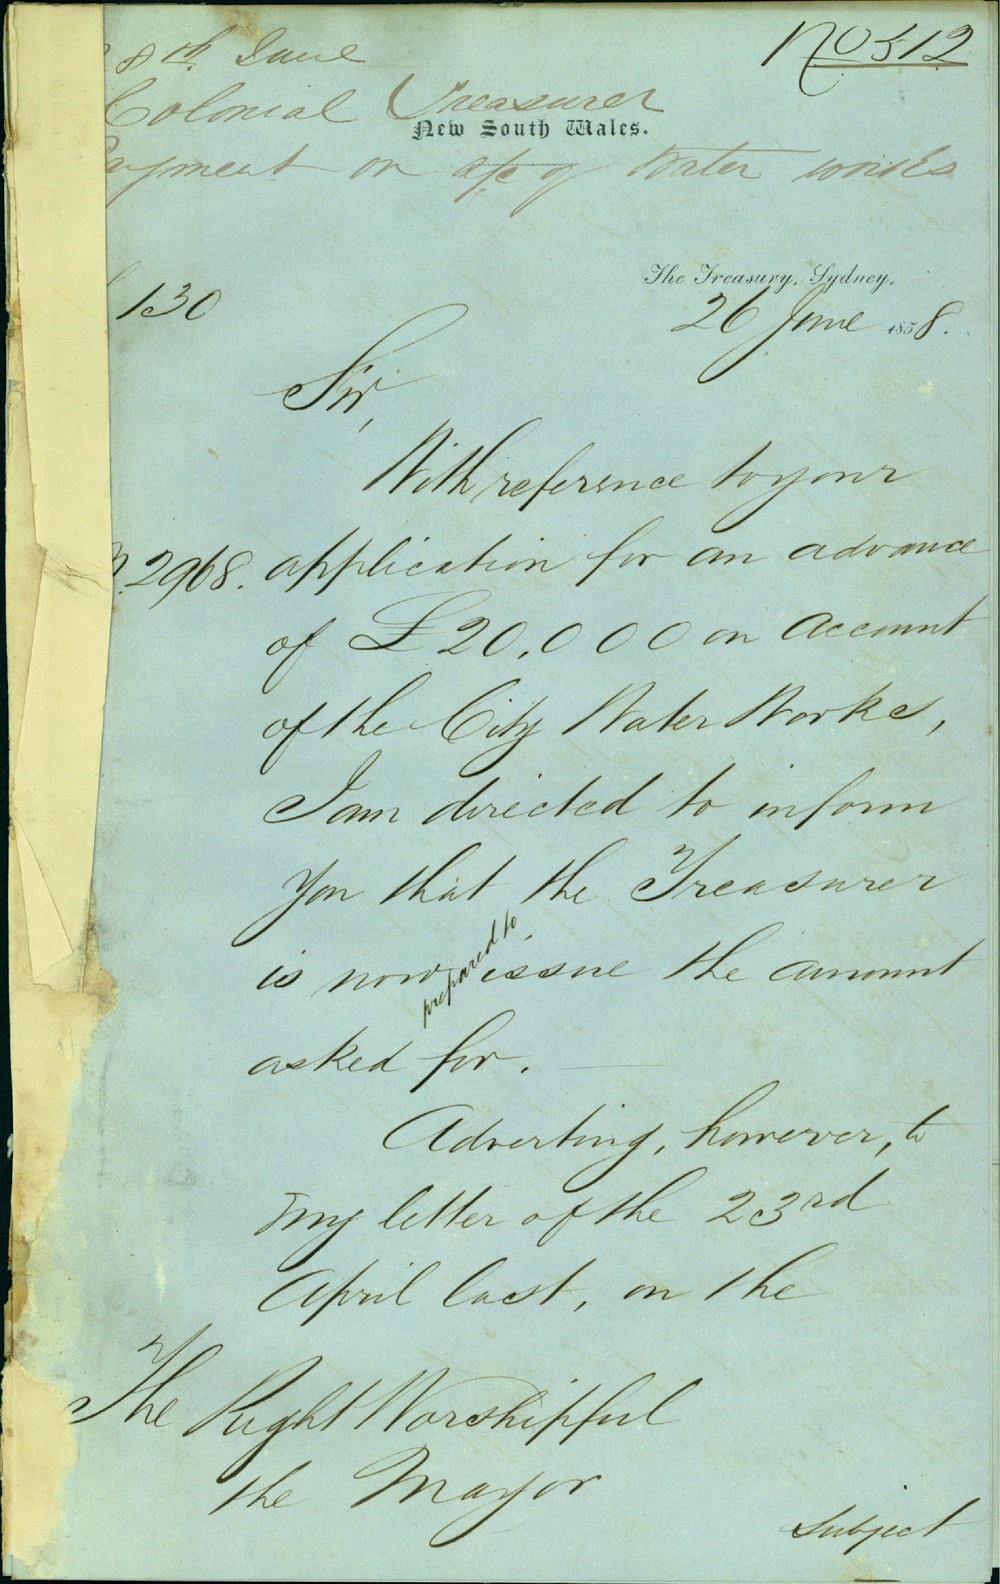 8th June
No 512
Colonial Treasurer
New South Wales.
Payment on a/c of Water works
The Treasury, Sydney.
130
26 June 1858.
Sir,
With reference to your
2968. application for an advance
of £20,000 on Account
of the City Water Works,
I am directed to inform
you that the Treasurer
prepared to
is now issue the amount
asked for.
Adverting, however, to
my letter of the 23rd
April last, on the
The Right Worshipful
the Mayor
Subject